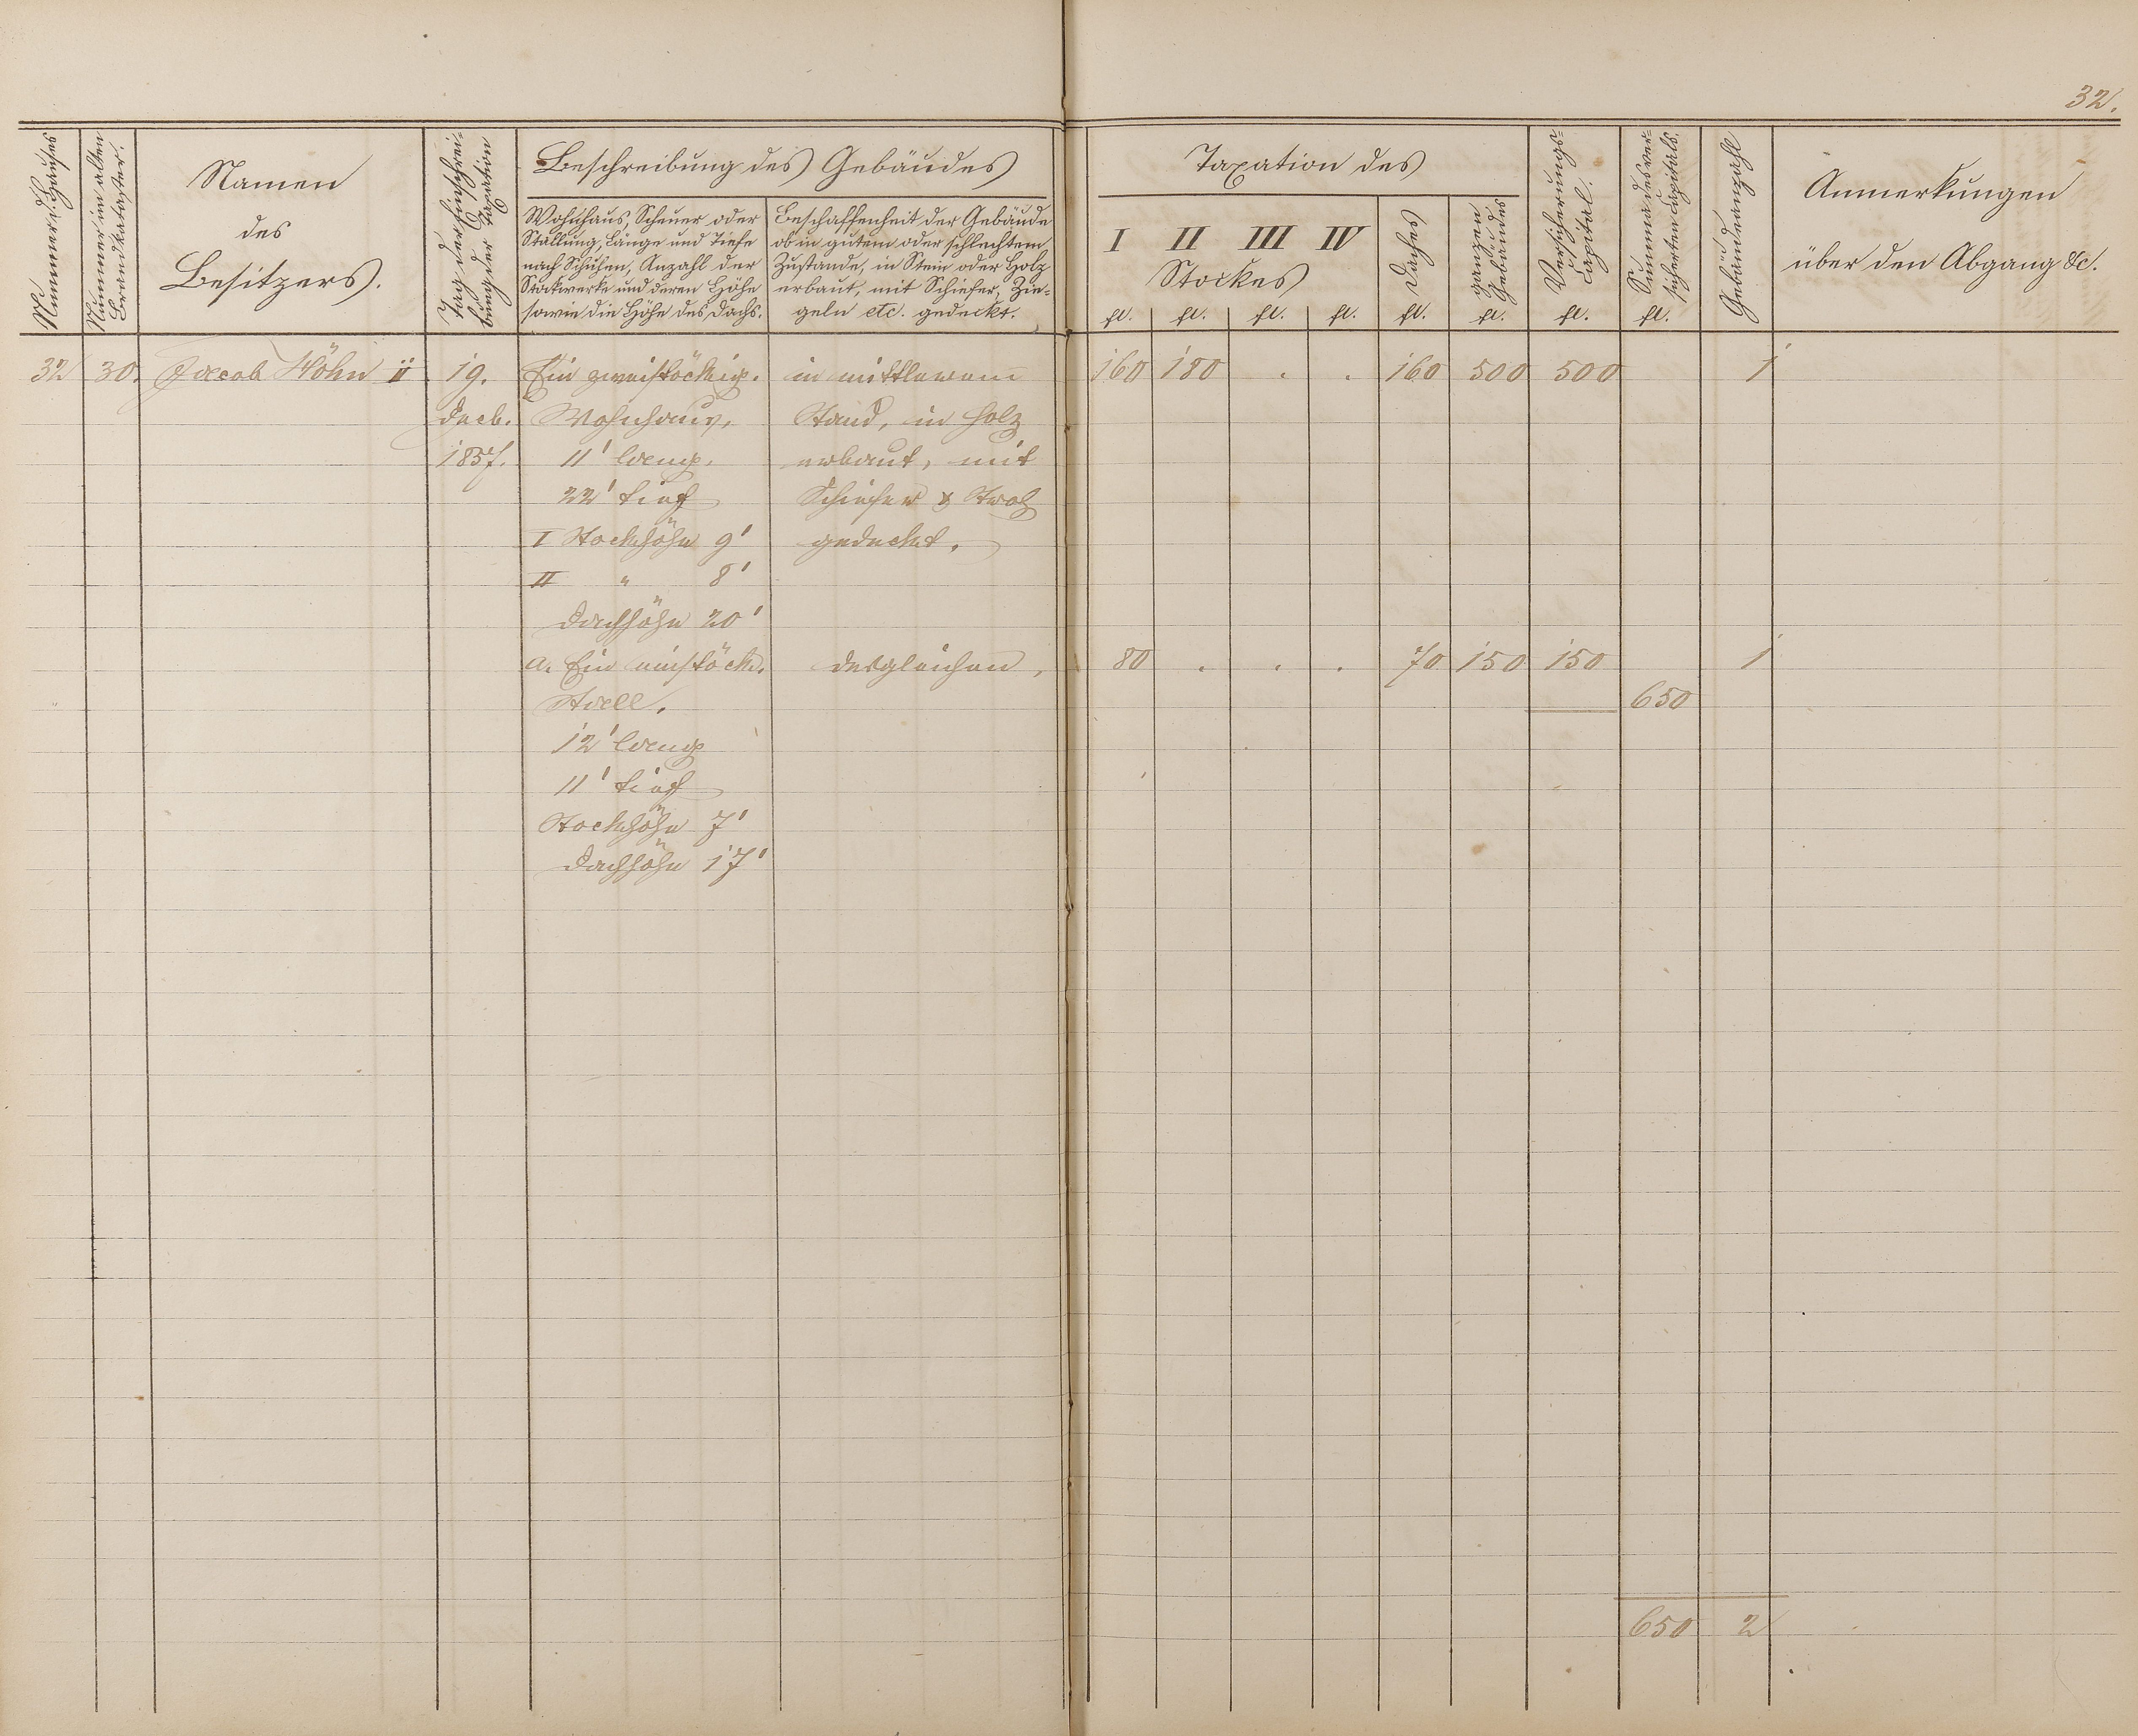 32.
Nummer d. Hauses
Nummer im alten
Brandkataster.
Namen
des
Besitzers.
Tag der Einschrei-
bung der Taxation
Beschreibung des Gebäudes
Wohnhaus, Scheuer oder
Stallung, Länge und Tiefe
nach Schuhen, Anzahl der
Stockwerke und deren Höhe
sowie die Höhe des Dachs.
Beschaffenheit der Gebäude
ob in gutem oder schlechtem
Zustande, in Stein oder Holz
erbaut, mit Schiefer, Zie-
geln etc. gedeckt.
Taxation des
I II III IV
Stockes
Daches
ganzen
Gebäudes
Versicherungs-
Capital.
Summa des ver-
sicherten Capitals.
Gebäudeanzahl
Anmerkungen
über den Abgang &c.
fl. fl. fl. fl. fl. fl. fl. fl.
32 30. Jacob Höhn II 19. Ein zweistöckig. in mittlerem 160 180 . . 160 500 500 1
Decb. Wohnhaus, Stand, in Holz
1857. 11' lang. erbaut, mit
22' tief Schiefer & Stroh
I Stockhöhe 9' gedeckt.
II " 8'
Dachhöhe 20'
a. Ein einstöck. desgleichen, 80 . . . 70 150 150 1
Stall. 650
12' lang
11' tief
Stockhöhe 7'
Dachhöhe 17'
650 2